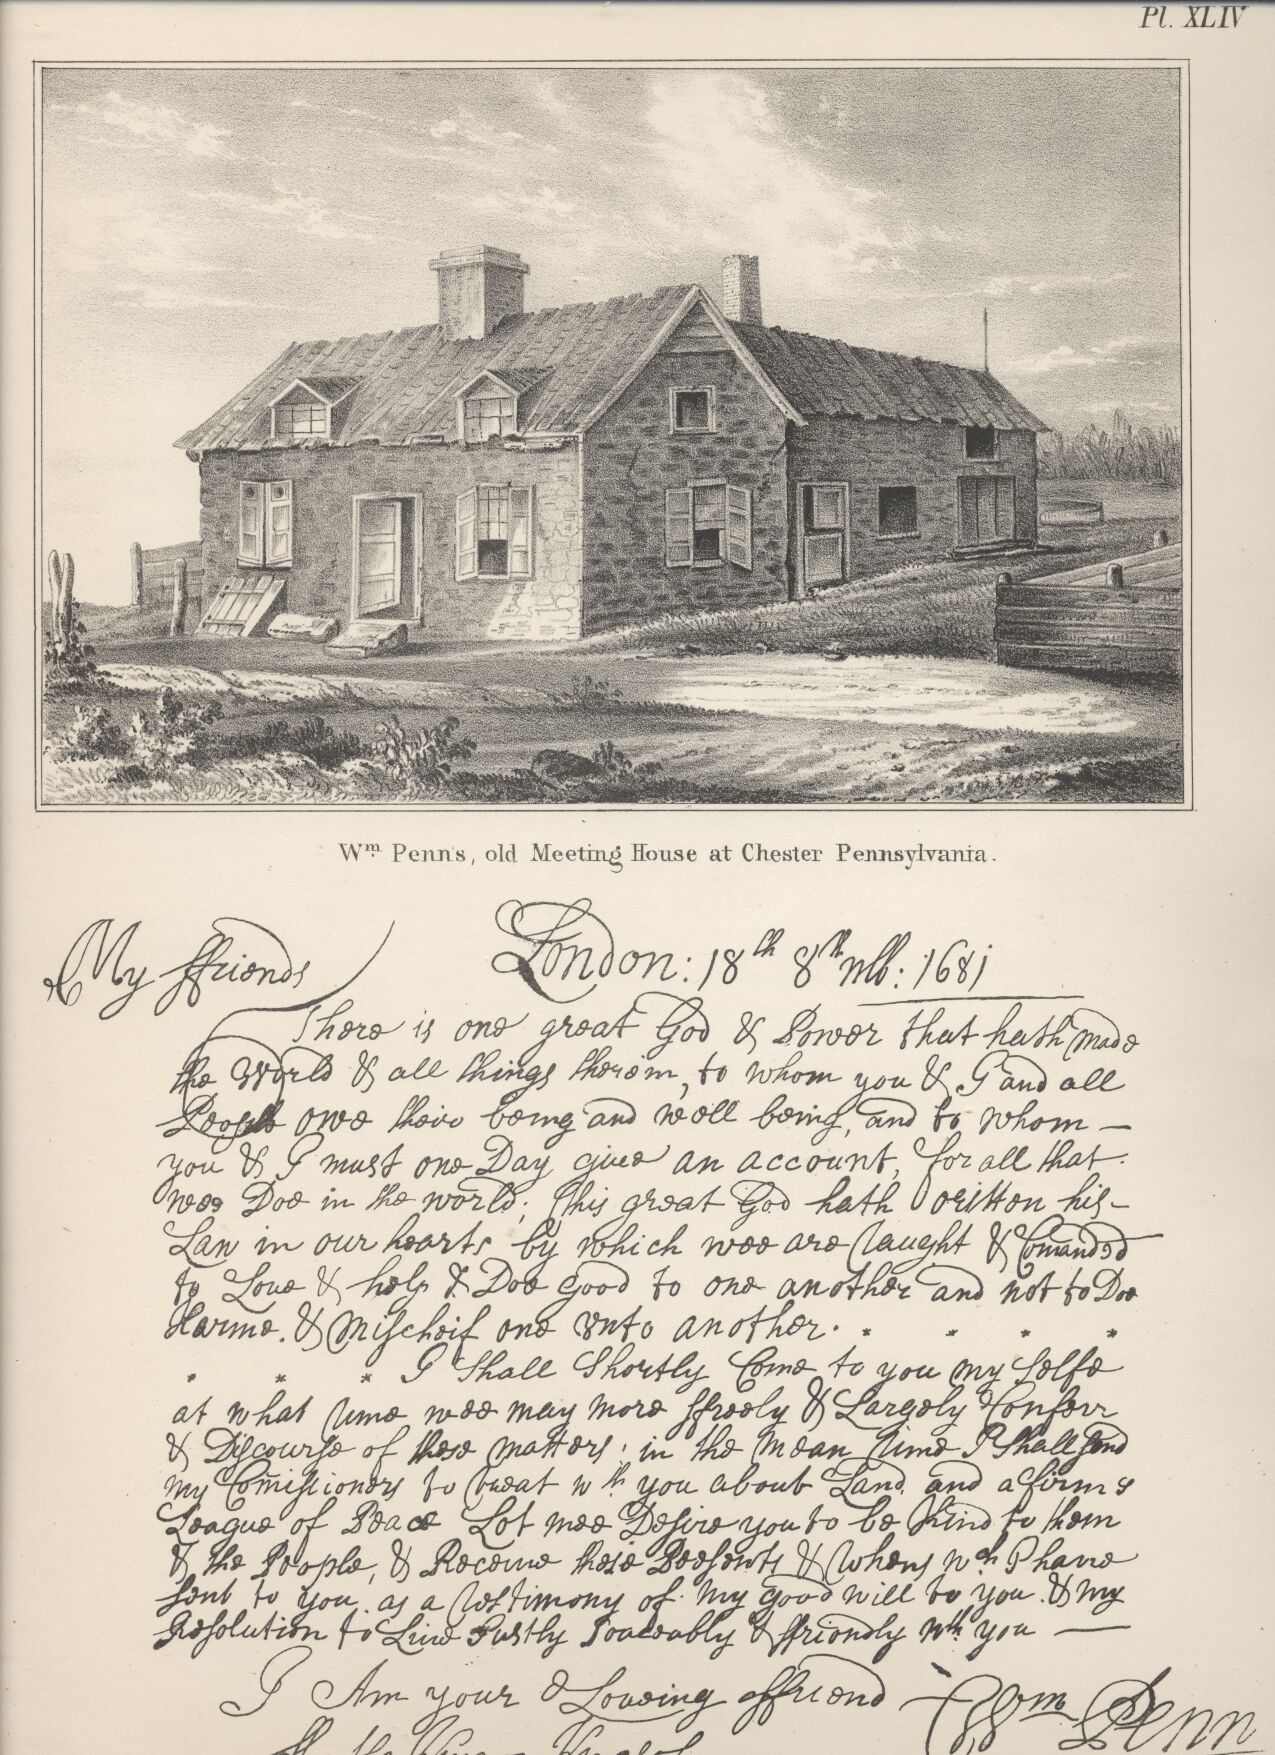 Pl. XLIV
Wm. Penn's, old Meeting House at Chester Pennsylvania.
My ffriends
London: 18th 8th mb: 1681
There is one great God & Power that hath made
the World & all things therein, to whom you & I and all
People owe their being and well being, and to whom —
you & I must one Day give an account, for all that
wee Doe in the world; this great God hath writton his
Law in our hearts by which wee are taught & Comanded
to Love & help & Doe good to one another and not to Doe
Harme. & Mischeif one unto another. * * * *
* * * I Shall Shortly Come to you my Selfe
at what time wee may more ffreely & Largely Conferr
& Discourse of these matters; in the mean time I Shall Send
my Comissioners to treat wth you about Land and a firme
League of Peace Let mee Desire you to be Kind to them
& the People, & Receive these Presents & which I have
Sent to you as a testimony of my good will to you & my
Resolution to Live Justly Peaceably & ffriendly wth you —
I Am your Loveing ffriend
Wm Penn